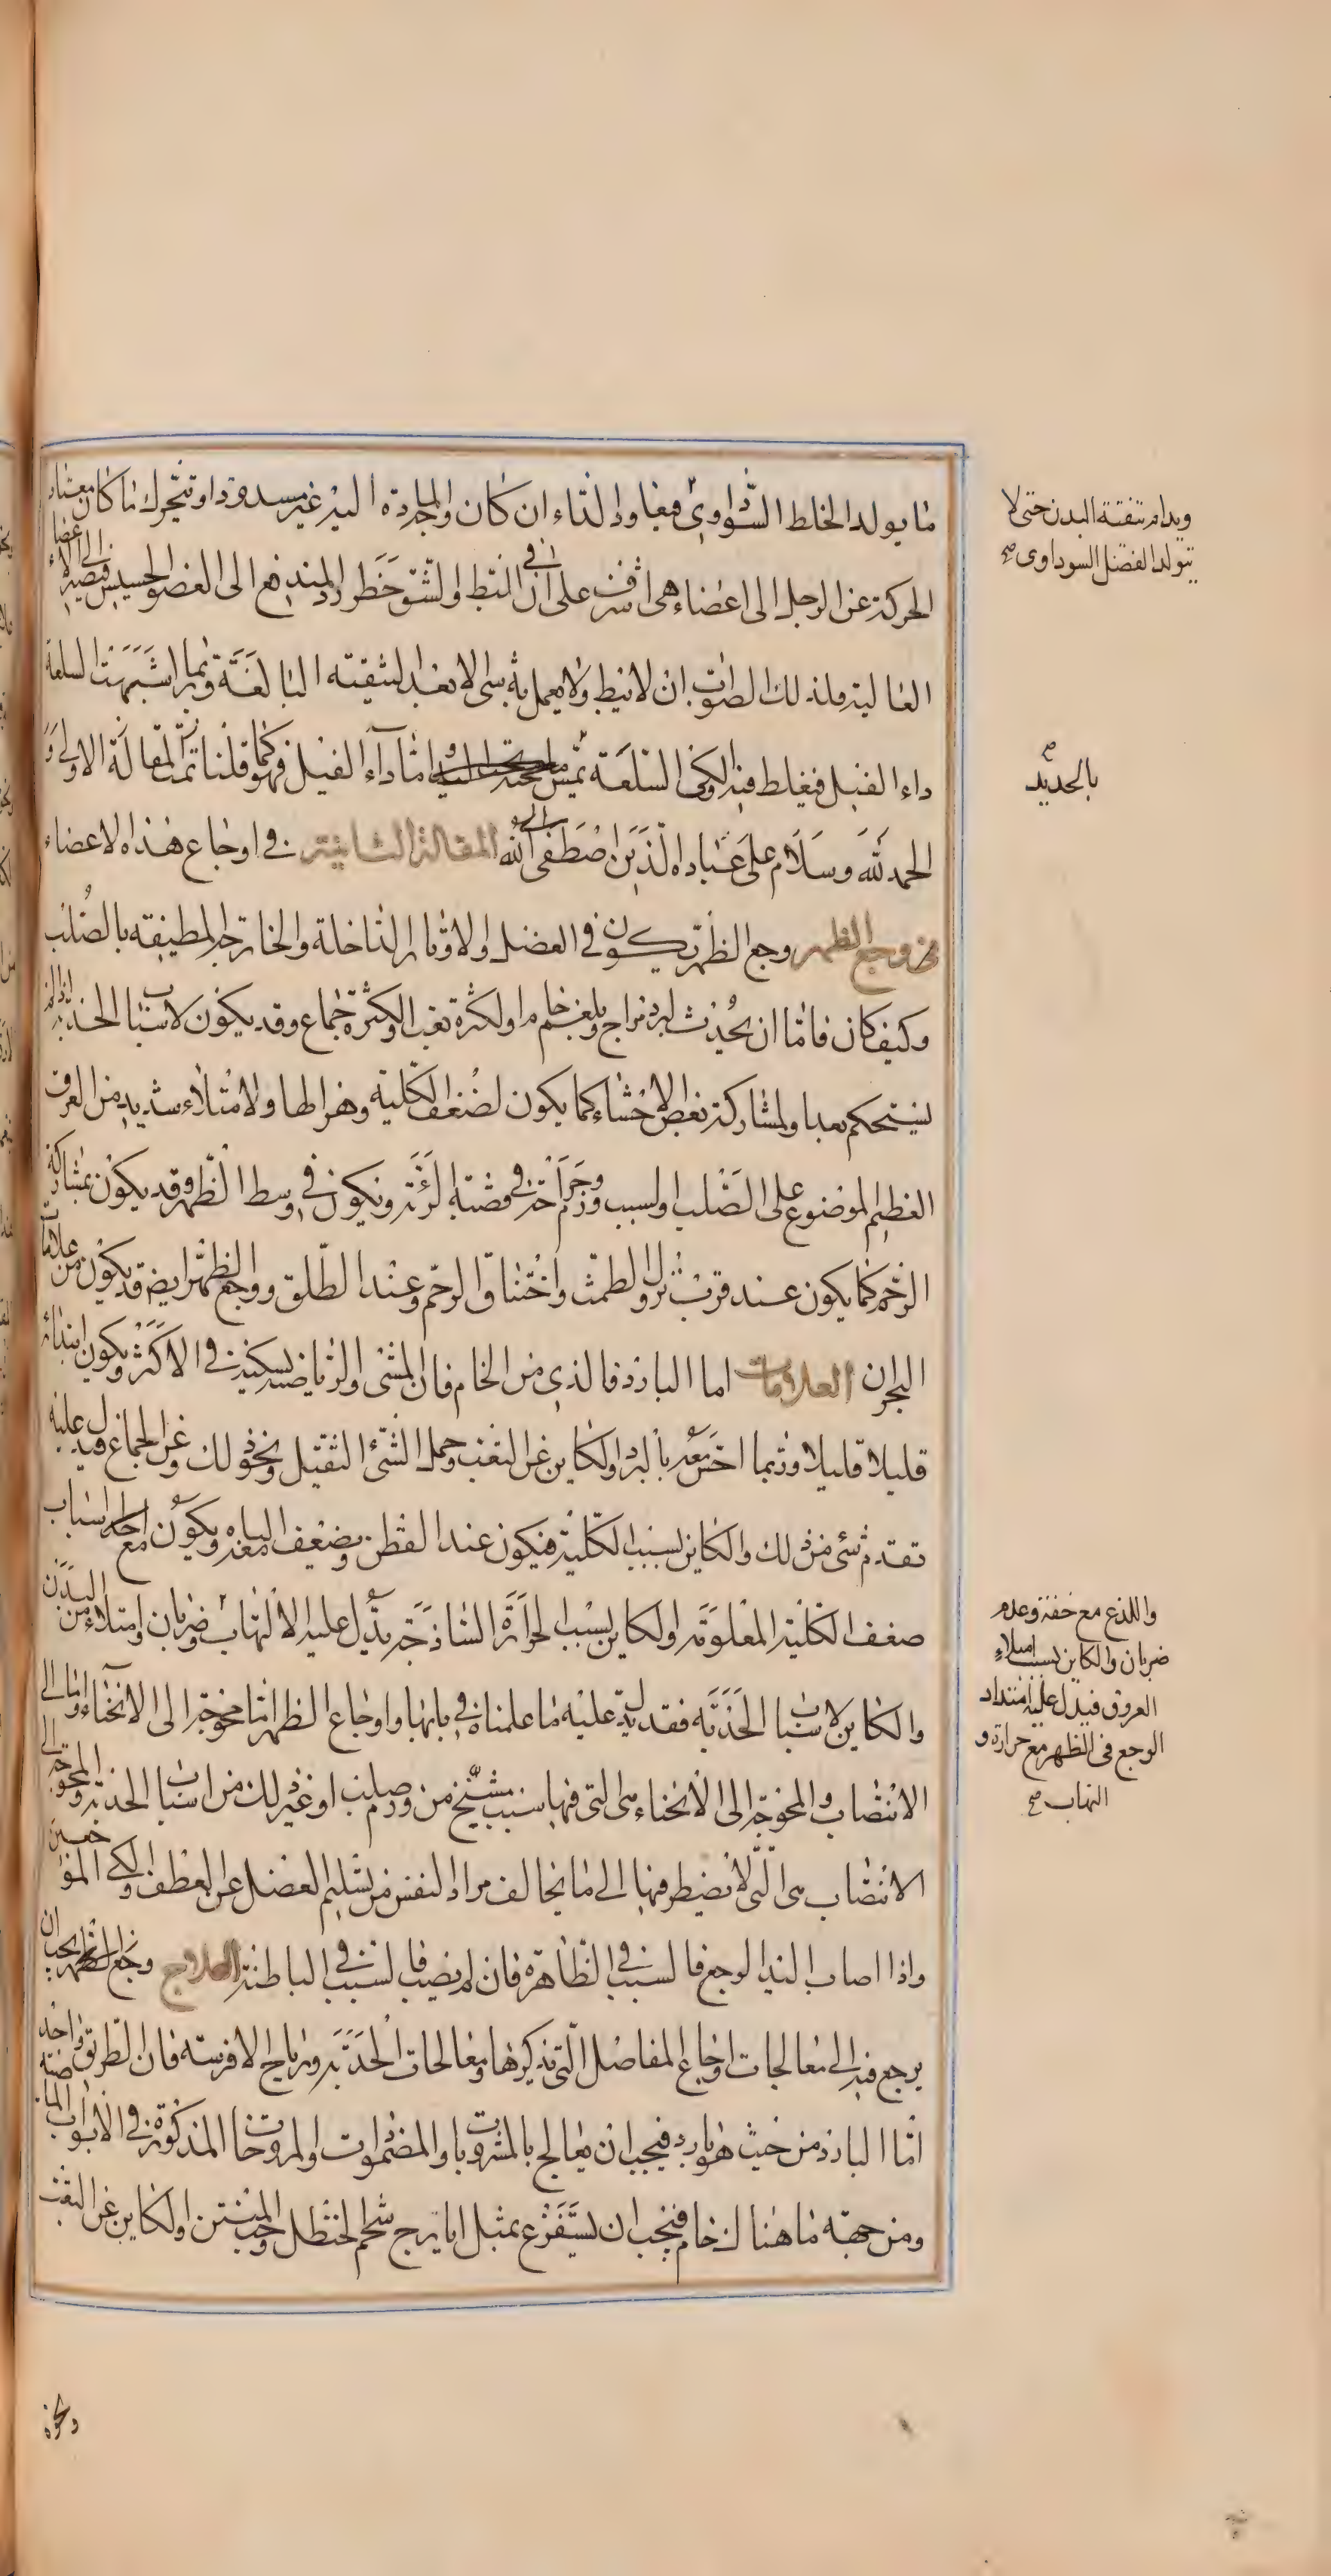 ما يولد الخلط السوداوى فيعاود الداء ان كان والمادة اليه غير مسدودة او تتحرك ما كان معتاد
الحركة عن الرجل الى اعضاء هى اشرف على ان فى البط والشق خطر رد المندفع الى العضو الخسيس فيصير الى الاعضاء
العالية فلذلك الصواب ان لا يبط ولا يعمل به شى الا بعد التنقية البالغة وربما اشتبهت السلعة
داء الفيل فيغلط فيه ولكن السلعة تميس ما تحت الجلد واما داء الفيل فهو كما قلنا تمت المقالة الاولى و
الحمد لله وسلام على عباده الذين اصطفى الله المقالة الثانية فى اوجاع هذه الاعضاء
فى وجع الظهر وجع الظهر يكون فى العضل والاوتار الداخلة والخارجة المطيفة بالصلب
وكيف كان فاما ان يحدث لبرد مزاج وبلغم خام او لكثرة تعب او لكثرة جماع وقد يكون لاسباب الحدبة اذا لم
يستحكم بعد او لمشاركة بعض الاحشاء كما يكون لضعف الكلية وهزالها ولامتلاء شديد من العرق
العظيم الموضوع على الصلب او لسبب ورم وجراحة فى قصبة الرئة ويكون فى وسط الظهر وقد يكون بمشاركة
الرحم كما يكون عند قرب نزول الطمث واختناق الرحم وعند الطلق ووجع الظهر ايضا قد يكون من علامات
البحران العلامات اما البارد فالذى من الخام فان المشى والرياضة يسكنه فى الاكثر ويكون ابتداؤه
قليلا قليلا وربما احس معه بالبرد والكاين عن التعب وحمل الشئ الثقيل ونحو ذلك وعن الجماع فيدل عليه
تقدم شئ من ذلك والكاين بسبب الكلية فيكون عند القطن ويضعف الباه معه ويكون مع احد اسباب
ضعف الكلية المعلومة والكاين بسبب الحرارة الساذجة يدل عليه الالتهاب وضربان وامتلاء من البدن
والكاين لاسباب الحدبة فقد يدل عليه ما علمناه فى بابها واوجاع الظهر اما محوجة الى الانحناء واما الى
الانتصاب والمحوجة الى الانحناء هى التى فيها سبب مشنج من ورم صلب او غير ذلك من اسباب الحدبة والمحوجة الى
الانتصاب هى التى لا يضطر فيها الى ما يخالف مراد النفس من تسليم العضل عن العطف والكى الموجعين
واذا اصاب اليد الوجع فالسبب فى الظاهرة فان لم يصب فالسبب فى الباطنة العلاج وجع الظهر يجب ان
يرجع فيه الى معالجات اوجاع المفاصل التى نذكرها ومعالجات الحدبة ورياح الافرسة فان الطريق واحد
اما البارد من حيث هو بارد فيجب ان يعالج بالمشروبات والمضمولات والمروخات المذكورة فى الابواب الماضية
ومن جهة ما هناك خام فيجب ان يستفرغ بمثل ايارج شحم الحنظل وحب المنتن والكاين عن التعب
ونحوه
ويدام تنقية البدن حتى لا
يتولد الفضل السوداوى صح
بالحديد صح
واللذع مع خفة وعدم
ضربان والكاين بسبب امتلاء
العروق فيدل عليه امتداد
الوجع فى الظهر مع حرارة و
التهاب صح